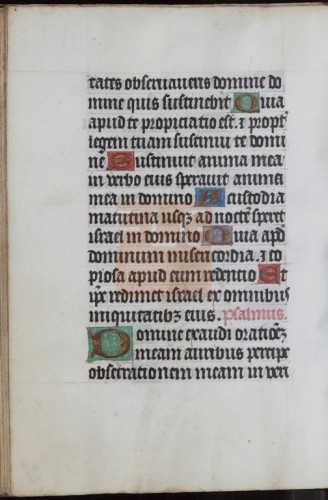 tates observaveris domine do
mine quis sustinebit Quia
apud te propiciatio est. ⁊ propt̉
legem tuam sustinui te domi
nē Sustinuit anima mea
in verbo eius speravit anima
mea in domino A custodia
matutina usqꝫ ad noctē speret
israel in domino Quia apd̄
dominum misericordia. ⁊ co
piosa apud eum redentio Et
ip̄e redimet israel ex omnibus
iniquitatibꝫ eius. psalmus.
Domine exaudi orationēꝫ
meam auribus percipe
obsecrationem meam in veri